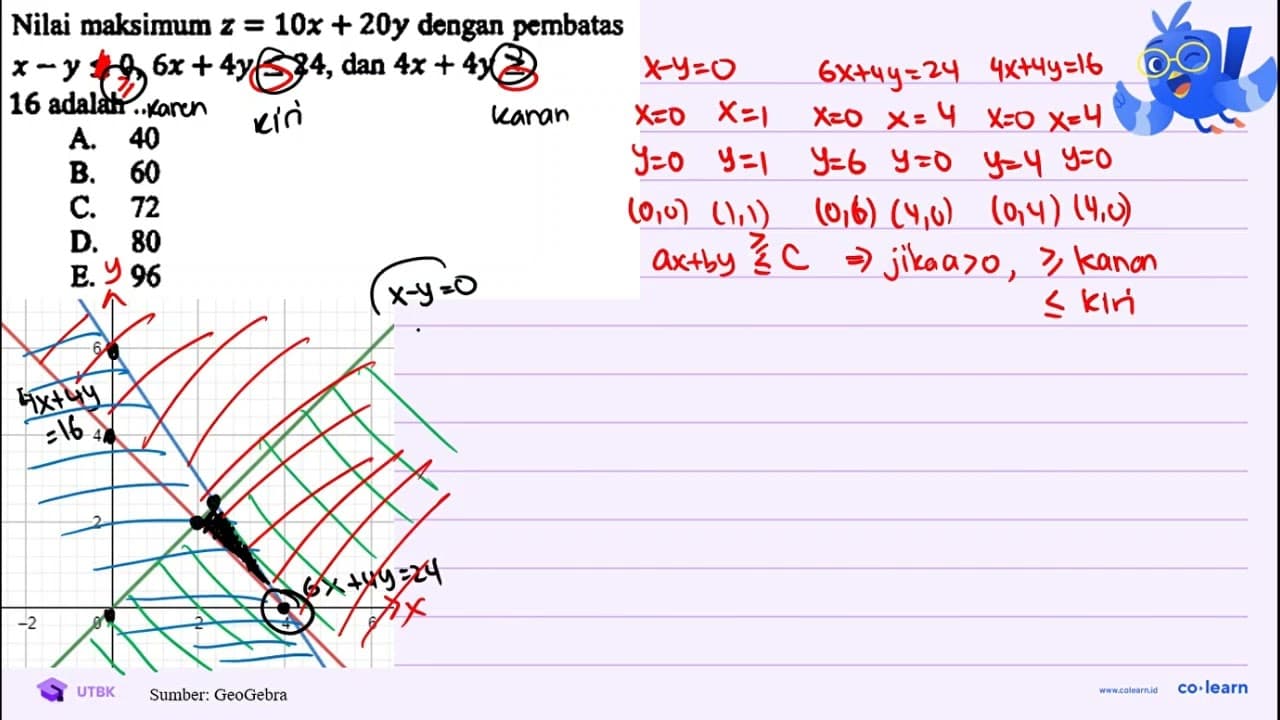 Nilai maksimum z = 10x + 20y dengan pembatas
x − y ≥ 0, 6x + 4y ≤ 24, dan 4x + 4y ≥
16 adalah ..
karen
kiri
kanan
A. 40
B. 60
C. 72
D. 80
E. 96
x-y=0 6x+4y=24 4x+4y=16
x=0 x=1 x=0 x=4 x=0 x=4
y=0 y=1 y=6 y=0 y=4 y=0
(0,0) (1,1) (0,6) (4,0) (0,4) (4,0)
ax+by ≥ ≤ C ⇒ jika a>0, ≥ kanan
≤ kiri
y
x-y=0
6
4x+4y
=16
4
2
6x+4y=24
x
-2 0 2 4 6
UTBK
Sumber: GeoGebra
www.colearn.id
co·learn